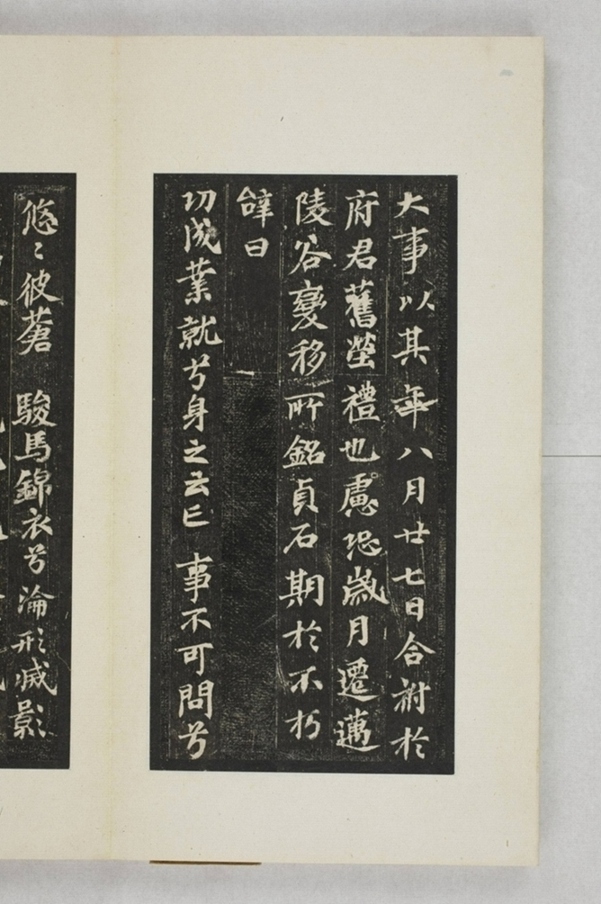 大事以其年八月廿七日合祔於
府君舊塋禮也慮恐歲月遷邁
陵谷變移所銘貞石期於不朽
辭曰
功成業就兮身之云亡 事不可問兮
悠〻彼蒼 駿馬錦衣兮淪形滅影